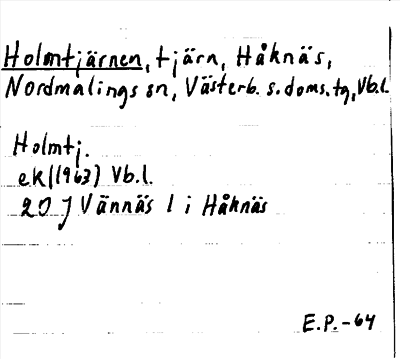 Holmtjärnen, tjärn, Håknäs,
Nordmalings sn, Västerb. s. doms. tg, Vb.l.
Holmtj.
ek (1963) Vb.l.
20 J Vännäs 1 i Håknäs
E.P.-64